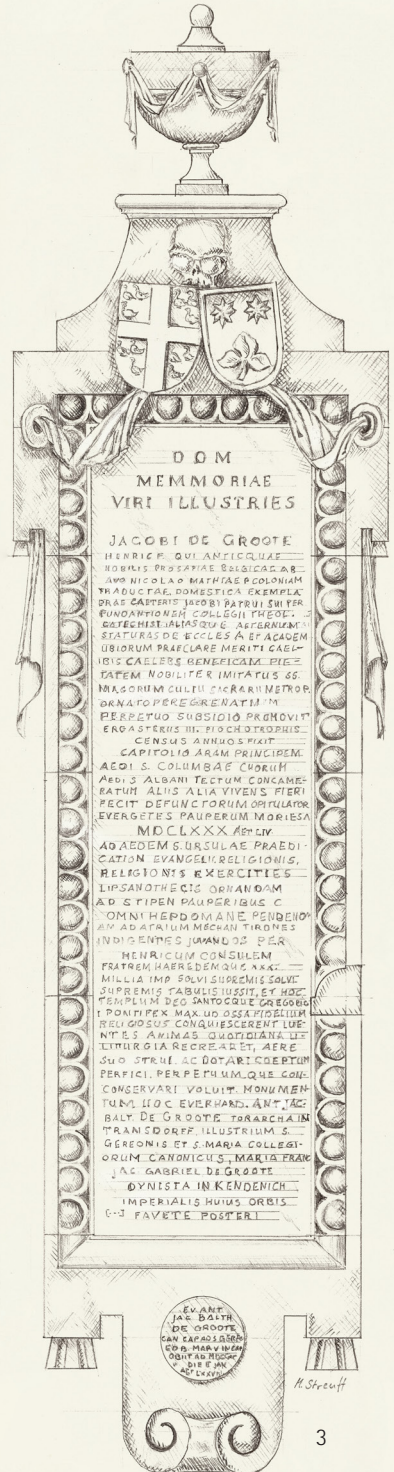 DOM
MEMMORIAE
VIRI ILLUSTRIES
JACOBI DE GROOTE
HENRICF QUI ANTICQUAE
NOBILIS PROSAPIAE BELGICAE AB
AVO NICOLAO MATHIAE P COLONIAM
TRADUCTAE, DOMESTICA EXEMPLA
PRAE CAETERIS JACOBI PATRUI SUI PER
FUNDANTIONEM COLLEGII THEOL.
CATECHIST ALIASQUE AETERNUM
STATURAS DE ECCLES A ET ACADEM
UBIORUM PRAECLARE MERITI CAEL-
IBIS CAELEBS BENEFICAM PIE-
TATEM NOBILITER IMITATUS SS.
MAGORUM CULTU SACRARII METROP.
ORNATO PEREGRENATIM M
PERPETUO SUBSIDIO PROMOVIT
ERGASTERIIS III. PIOCHOTROPHIS
CENSUS ANNUOS FIXIT
CAPITOLIO ARAM PRINCIPEM
AEDI S. COLUMBAE CUORUM
AEDI S ALBANI TECTUM CONCAME-
RATUM ALIIS ALIA VIVENS FIERI
FECIT DEFUNCTORUM OPITULATOR
EVERGETES PAUPERUM MORIESA
MDCLXXX AET LIV
AD AEDEM S. URSULAE PRAEDI-
CATION EVANGELII. RELIGIONIS,
RELIGIONIS EXERCITIES
LIPSANOTHECIS ORNANDAM
AD STIPEN PAUPERIBUS C
OMNI HEPDOMANE PENDENO
EM AD ATRIUM MECHAN TIRONES
INDIGENTES JUVANDOS PER
HENRICUM CONSULEM
FRATREM HAEREDEMQUE XXX.
MILLIA IMP SOLVI SUPREMIS SOLVI
SUPREMIS TABULIS IUSSIT, ET HOC
TEMPLUM DEO SANTOCQUE GREGORIO
I PONTIFEX MAX. UD OSSA FIDELIUM
RELIGIOSUS CONQUIESCERENT LUE-
NTES ANIMAS QUOTIDIANA LI-
TIURGIA RECREARET, AERE
SUO STRUI. AC DOTARI COEPTUM
PERFICI. PERPETHUM. QUE CON-
CONSERVARI VOLUIT. MONUMEN-
TUM HOC EVERHARD. ANT. JAC.
BALT. DE GROOTE TORARCHA IN
TRANSDORFF. ILLUSTRIUM S.
GEREONIS ET S. MARIA COLLEGI-
ORUM CANONICUS, MARIA FRANC
JAC GABRIEL DE GROOTE
DYNISTA IN KENDENICH
IMPERIALIS HUIUS ORBIS
[--] FAVETE POSTERI
EV. ANT
JAC BALTH
DE GROOTE
CAN CAP ADS GERE
OBIIT AD
DIE 5 JAN
AET LXXVI
M. Streuff
3